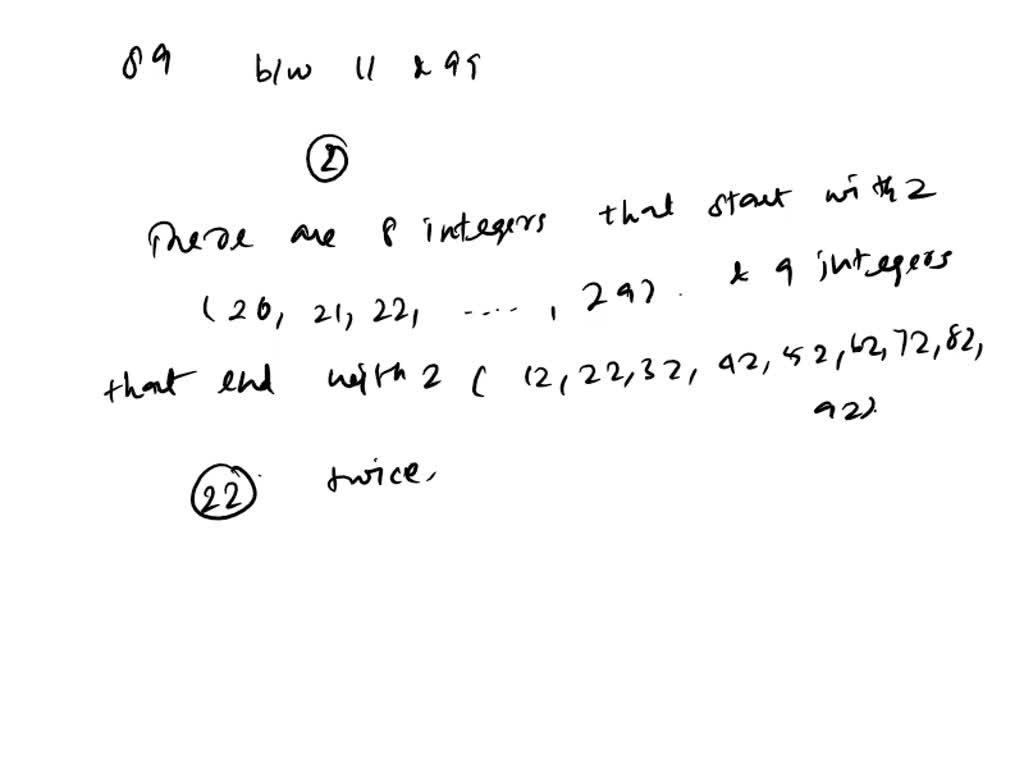 89 b/w 11 & 99
2
There are 8 integers that start with 2
(20, 21, 22, ...., 29). & 9 integers
that end with 2 (12, 22, 32, 42, 52, 62, 72, 82,
92).
22 twice.